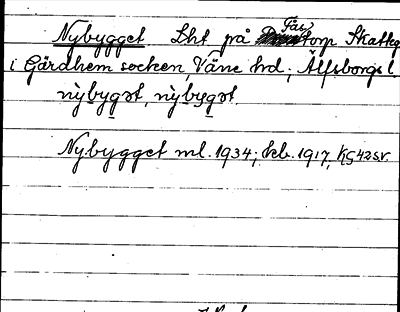 Nybygget Lht på Fårtorp Skatteg
i Gärdhem socken, Väne hd; Älfsborgs l
nỳbygət, nỳbygət
Nybygget ml. 1934; kb. 1917, KG42sv.